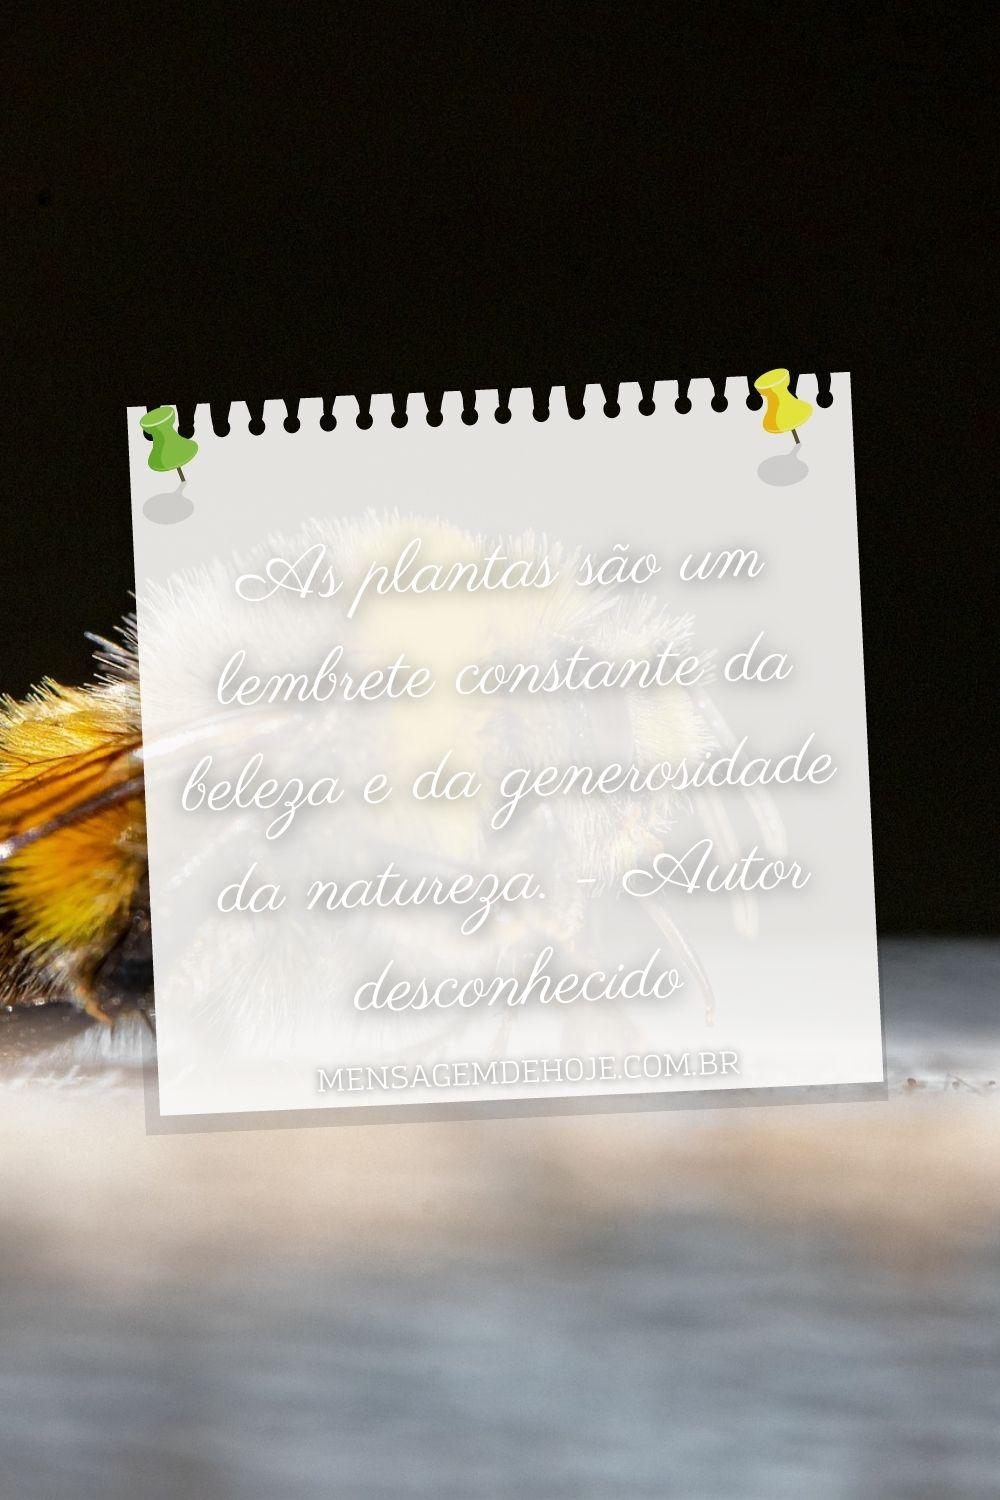 As plantas são um
lembrete constante da
beleza e da generosidade
da natureza. - Autor
desconhecido
MENSAGEMDEHOJE.COM.BR